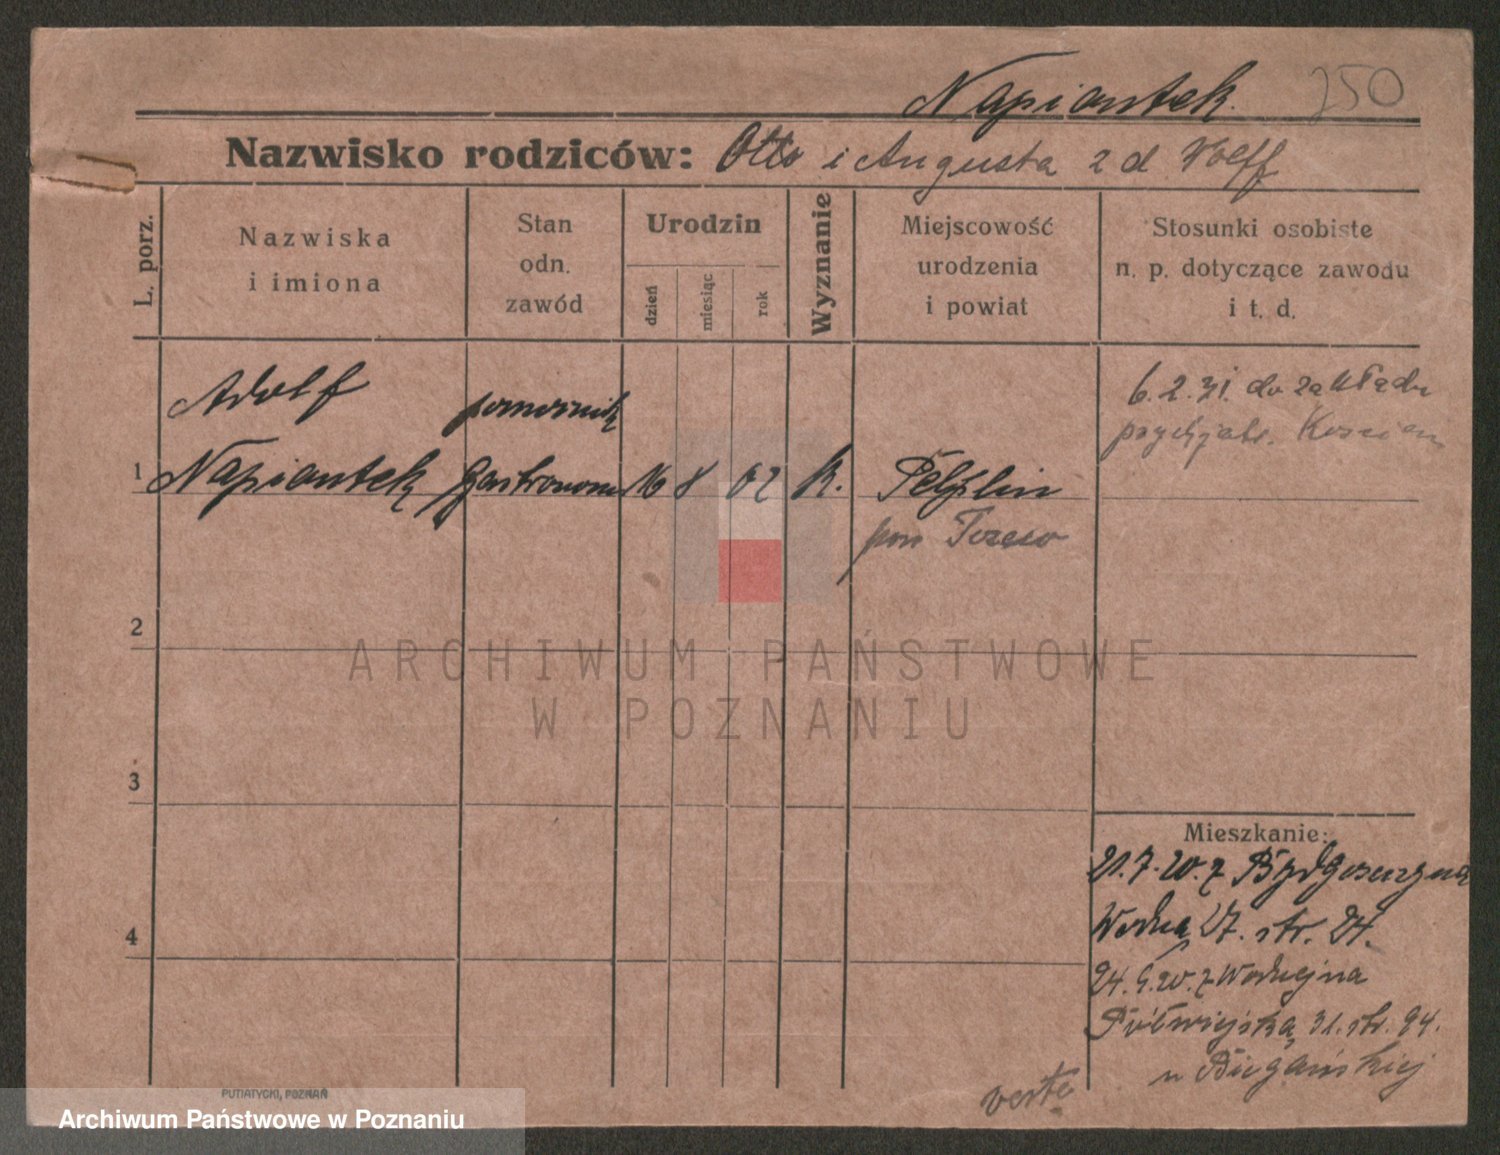 Napiontek. 250
Nazwisko rodziców: Otto i Augusta z d Wolff
L. porz.
Nazwiska
i imiona
Stan
odn.
zawód
Urodzin
dzień
miesiąc
rok
Wyznanie
Miejscowość
urodzenia
i powiat
Stosunki osobiste
n. p. dotyczące zawodu
i t. d.
Adolf
pomocnik
6.2.31. do zakładu
psychjatr. Kościan
1 Napiontek Gastronom 16 8 02 k. Pelplin
pow Tczew
2
3
4
Mieszkanie:
21.7.20. z Bydgoszczy na
Wodną 27. str. 24.
24.9.20. z Wodnej na
Półwiejską 31. str. 94.
u Biegańskiej
verte
PUTIATYCKI, POZNAŃ
ARCHIWUM PAŃSTWOWE
W POZNANIU
Archiwum Państwowe w Poznaniu